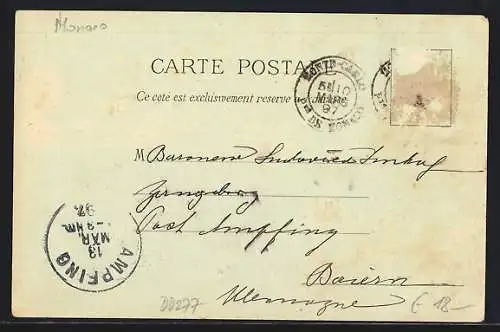 Monaco
CARTE POSTALE
Ce coté est exclusivement reservé
MONTE-CARLO
5E 10
MARS
97
Pté DE MONACO
M Baronesse Ludovica Imhof
Zangberg
Post Ampfing
Baiern
Allemagne
AMPFING
13
MÄR.
97.
DD277
€ 18.-